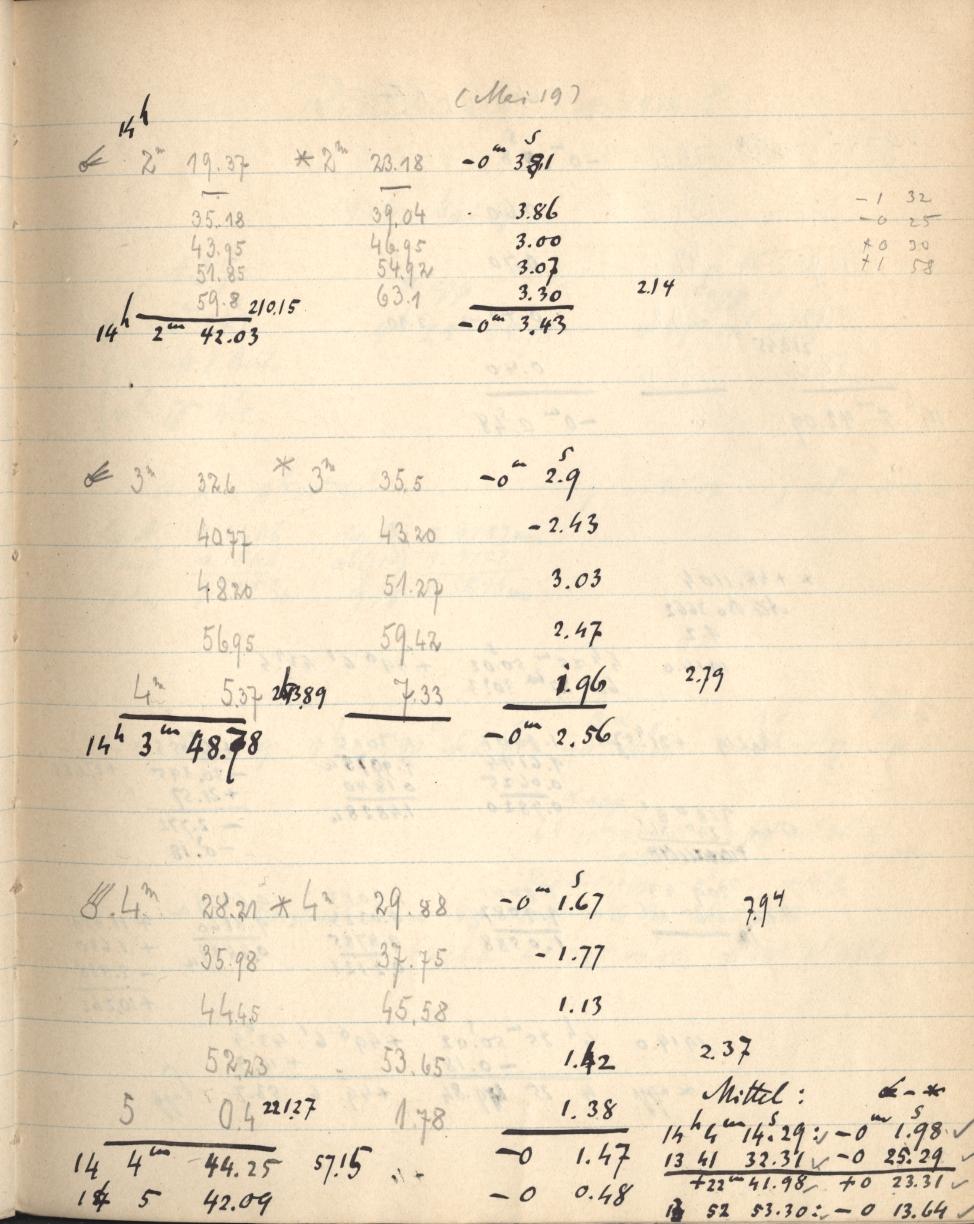 (Mai 19)
14h
☄ 2m 19.37 * 2m 23.18 -0m 3s.81
35.18 39.04 3.86
43.95 46.95 3.00
51.85 54.92 3.07
59.8 210.15 63.1 3.30 2.14
14h 2m 42.03 -0m 3.43
-1 32
-0 25
+0 30
+1 58
☄ 3m 32.6 * 3m 35.5 -0m 2s.9
40.77 43.20 -2.43
48.20 51.27 3.03
56.95 59.42 2.47
4m 5.37 243.89 7.33 1.96 2.79
14h 3m 48.78 -0m 2.56
☄ 4m 28.21 * 4m 29.88 -0m 1s.67 7.94
35.98 37.75 -1.77
44.45 45.58 1.13
52.23 53.65 1.42 2.37
5 0.4 221.27 1.78 1.38
14 4m 44.25 57.15 -0 1.47
14 5 42.09 -0 0.48
Mittel: ☄-*
14h 4m 14s.29: -0m 1s.98 ✓
13 41 32.31 ✓ -0 25.29 ✓
+22m 41.98 ✓ +0 23.31 ✓
52 53.30: -0 13.64 ✓